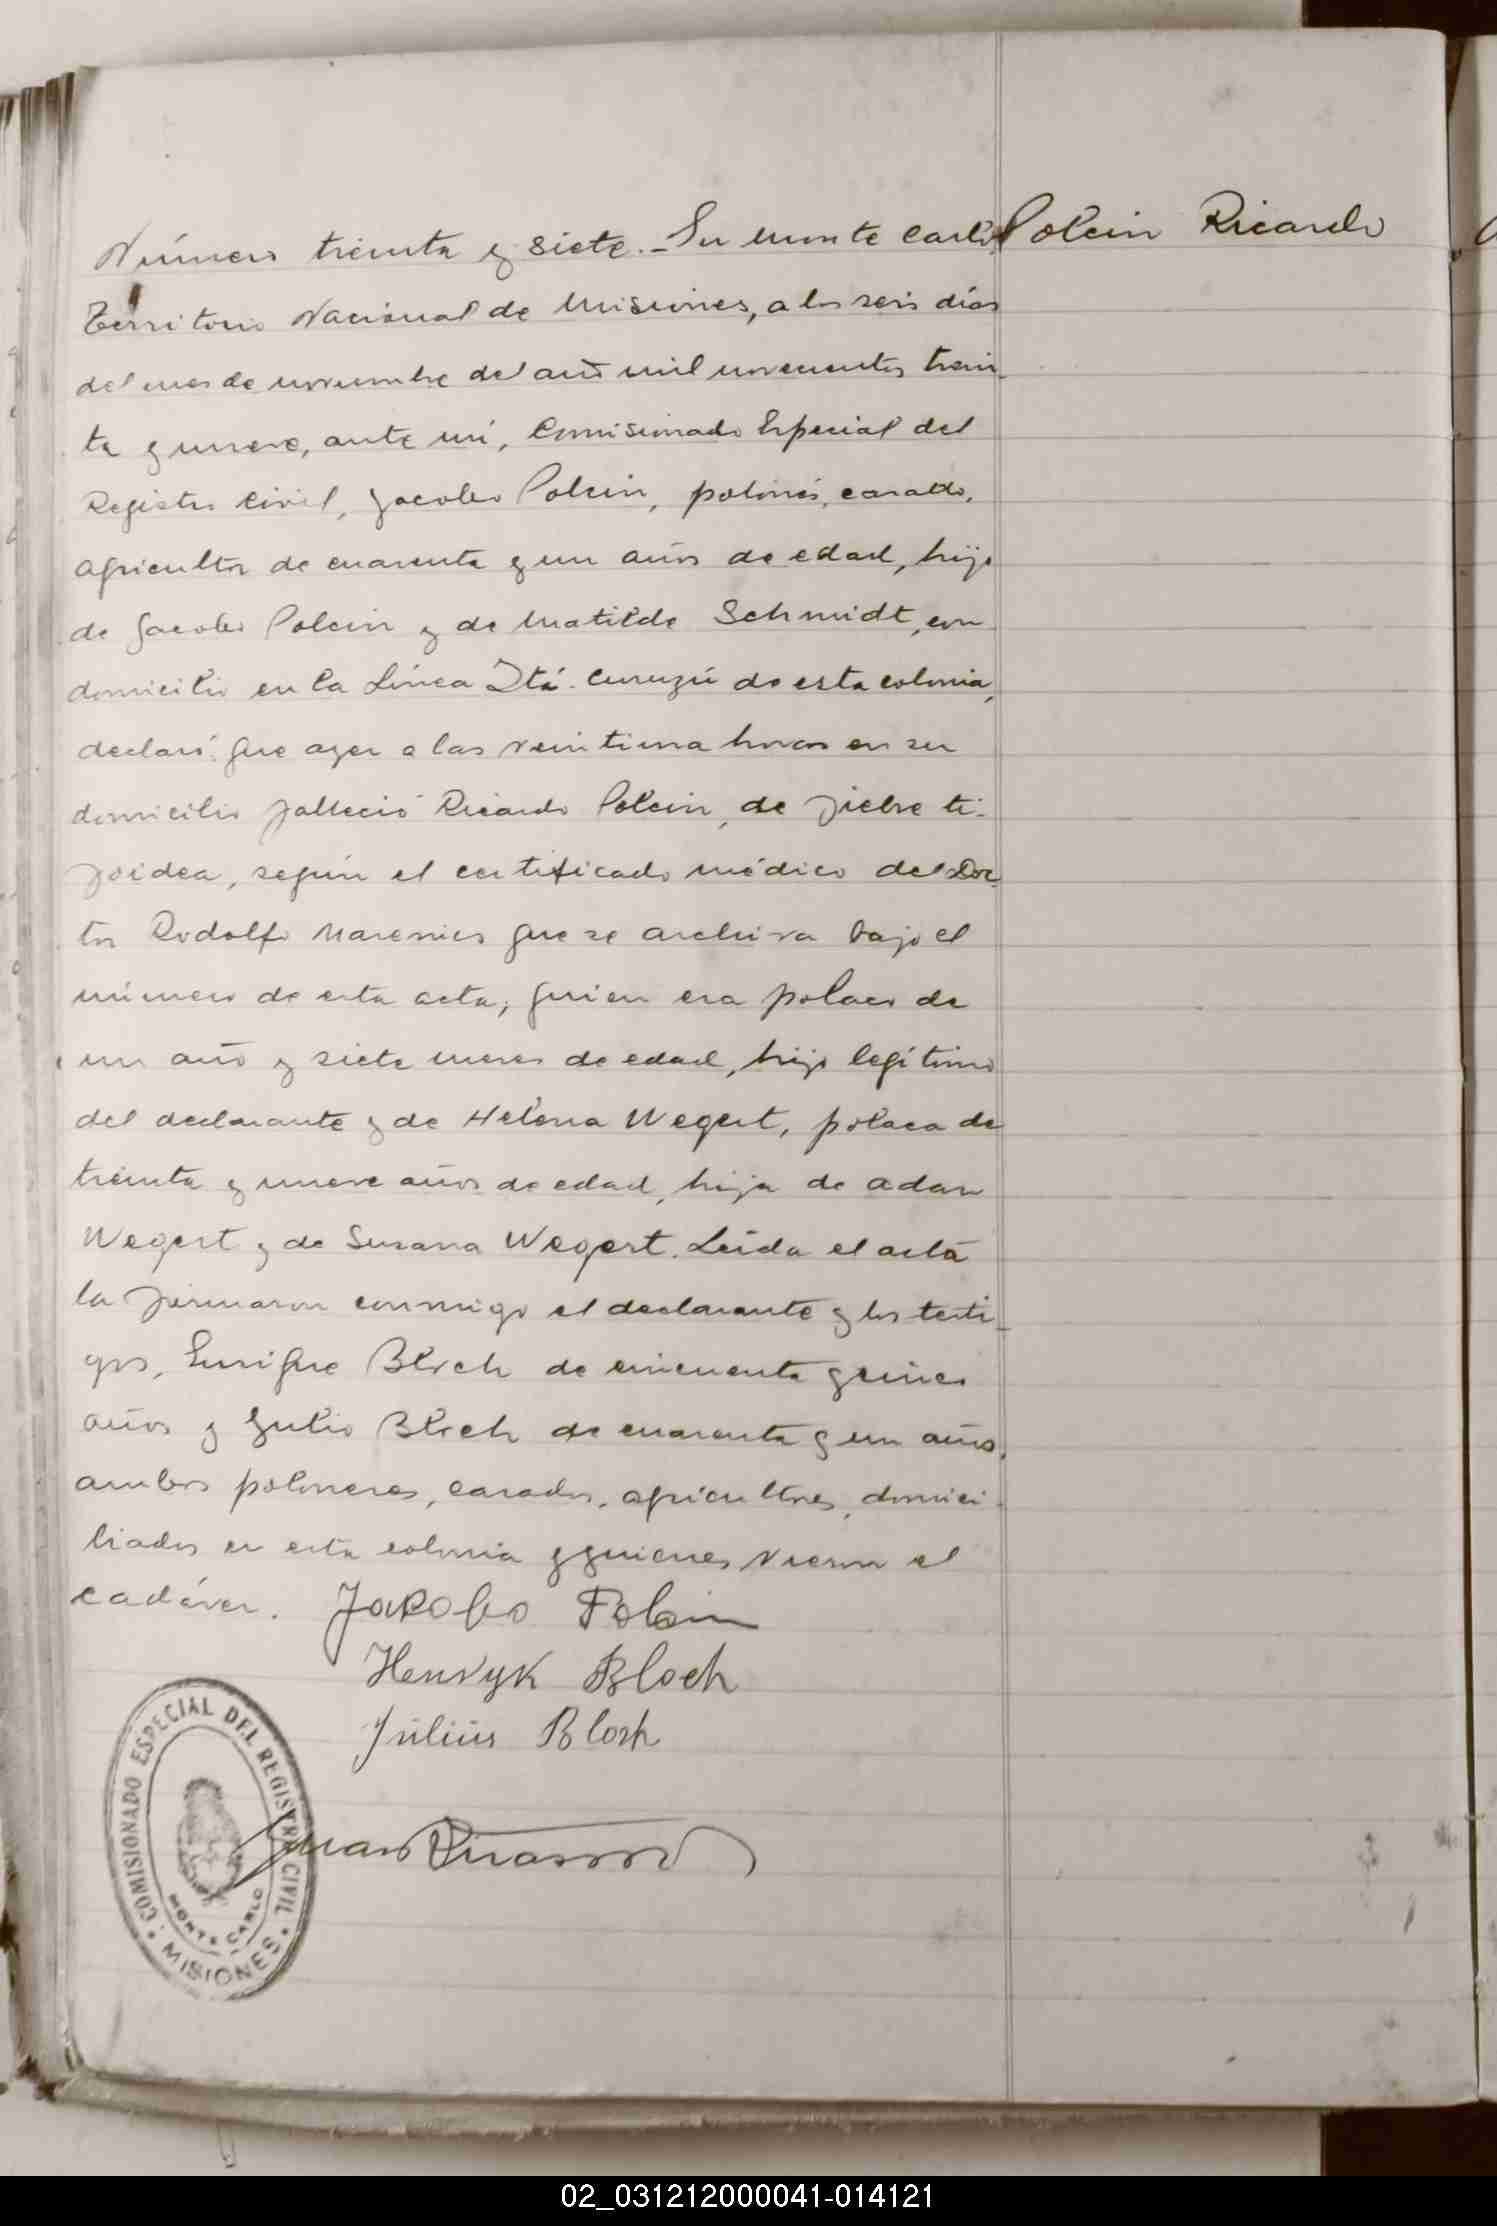 Polcin Ricardo
Número treinta y siete.- En Monte Carlo,
Territorio Nacional de Misiones, a los seis días
del mes de noviembre del año mil novecientos trein-
ta y nueve, ante mí, Comisionado Especial del
Registro Civil, Jacobo Polcin, polonés, casado,
agricultor de cuarenta y un años de edad, hijo
de Jacobo Polcin y de Matilde Schmidt, con
domicilio en la Línea Itá-Curuzú de esta colonia,
declaró: que ayer a las veintiuna horas en su
domicilio falleció Ricardo Polcin, de fiebre ti-
foidea, según el certificado médico del Doc-
tor Rodolfo que se archiva bajo el
número de esta acta; quien era polaco de
un año y siete meses de edad, hijo legítimo
del declarante y de Helena Wegert, polaca de
treinta y nueve años de edad, hija de Adan
Wegert y de Susana Wegert. Leída el acta
la firmaron conmigo el declarante y los testi-
gos, Enrique Bloch de cincuenta y cinco
años y Julio Bloch de cuarenta y un años,
ambos poloneses, casados, agricultores, domici-
liados en esta colonia y quienes vieron el
cadáver. Jakobo Polcin
Henryk Bloch
Julius Bloch
Juan
COMISIONADO ESPECIAL DEL REGISTRO CIVIL
MONTE CARLO
MISIONES
02_031212000041-014121